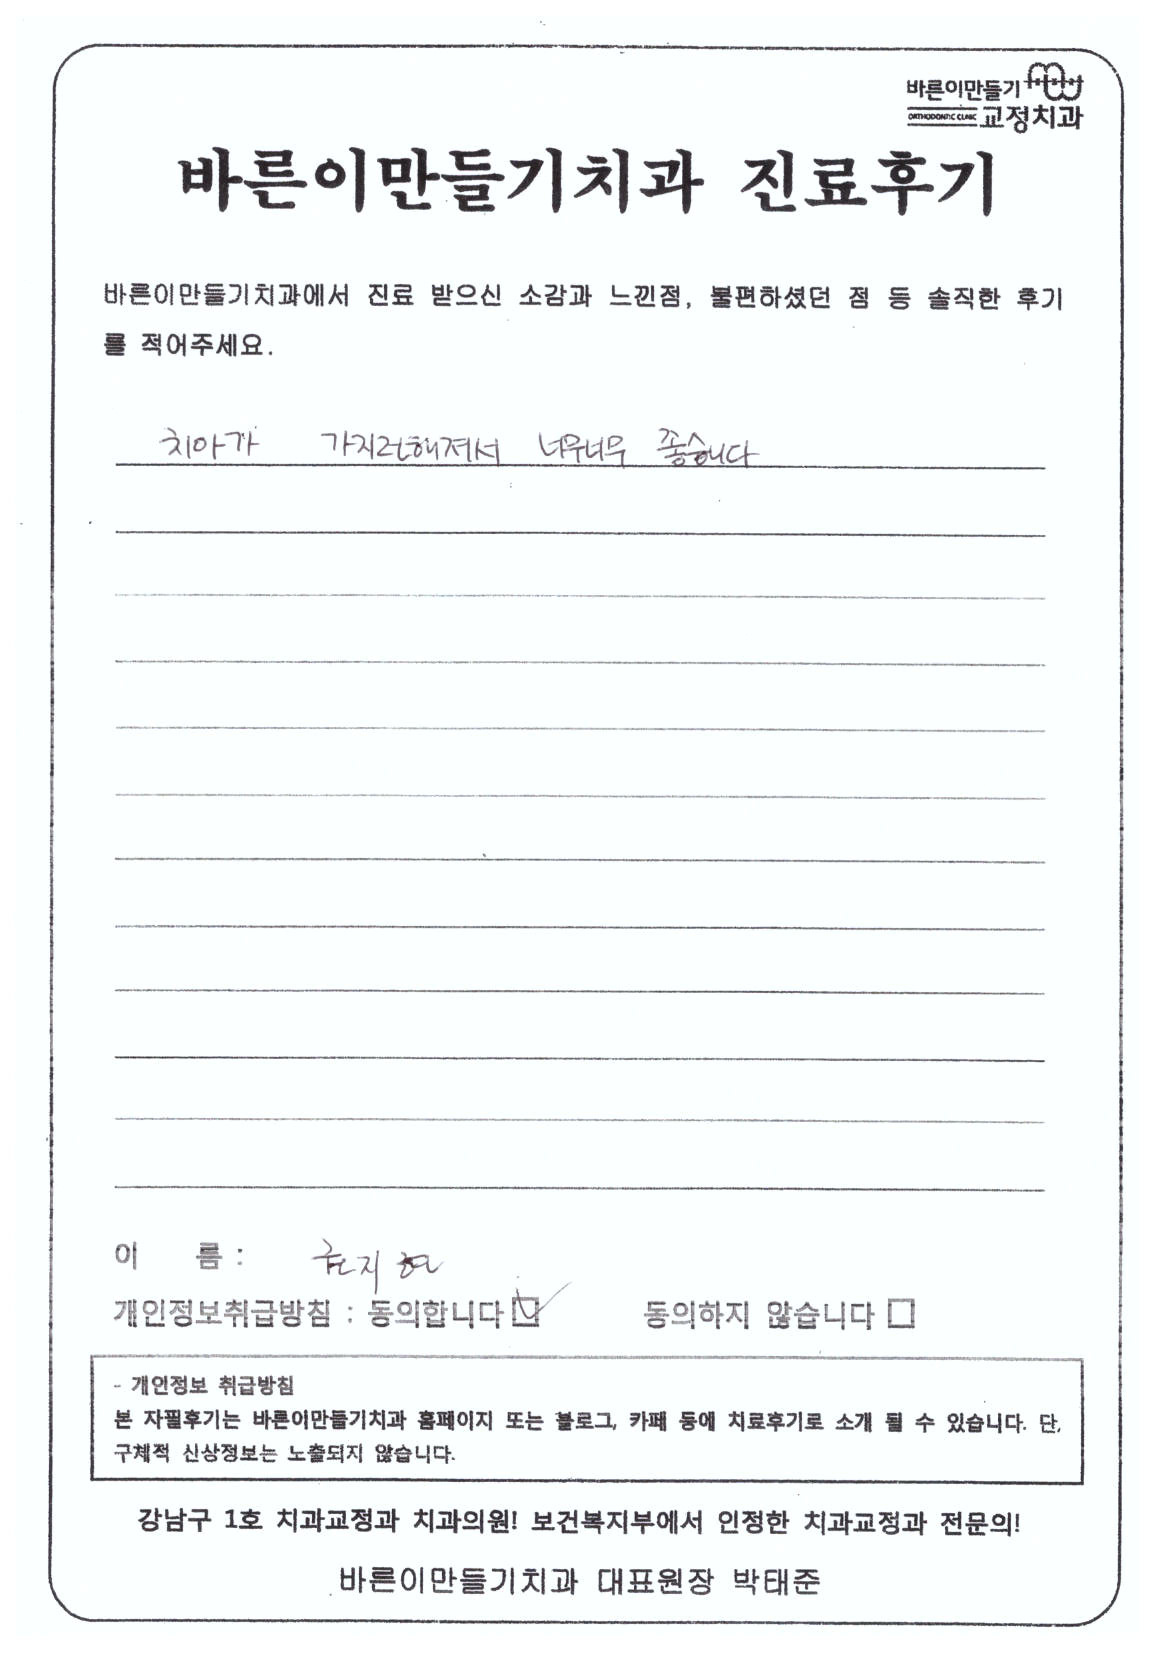 바른이만들기
ORTHODONTIC CLINIC 교정치과
바른이만들기치과 진료후기
바른이만들기치과에서 진료 받으신 소감과 느낀점, 불편하셨던 점 등 솔직한 후기
를 적어주세요.
치아가 가지런해져서 너무너무 좋습니다
이 름 :
개인정보취급방침 : 동의합니다 동의하지 않습니다
- 개인정보 취급방침
본 자필후기는 바른이만들기치과 홈페이지 또는 블로그, 카페 등에 치료후기로 소개 될 수 있습니다. 단,
구체적 신상정보는 노출되지 않습니다.
강남구 1호 치과교정과 치과의원! 보건복지부에서 인정한 치과교정과 전문의!
바른이만들기치과 대표원장 박태준